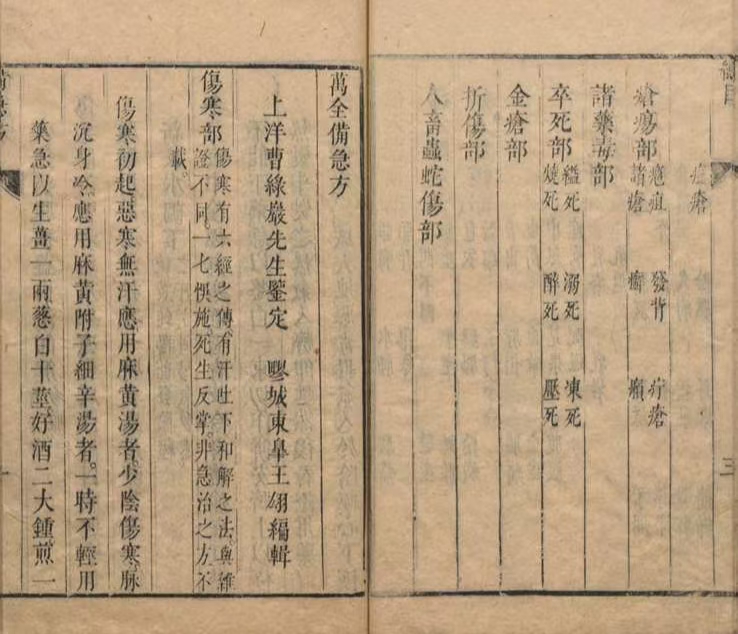 瘡
三
瘡瘍部
疽 發背 疔瘡
諸瘡 癩
諸藥毒部
卒死部
縊死 溺死 凍死
死 醉死 壓死
金瘡部
折傷部
人畜蟲蛇傷部
萬全備急方
上洋曹綠巖先生鑒定 城東皋王翃編輯
傷寒部
傷寒有六經之傳。有汗吐下和解之法。與雜
證不同。一七悞施死生反掌。非急治之方不
載。
傷寒初起惡寒無汗應用麻黃湯者。少陰傷寒脉
沉身冷應用麻黃附子細辛湯者。一時不輕用
藥急以生薑一兩葱白十莖好酒二大鍾煎一
備急方
一